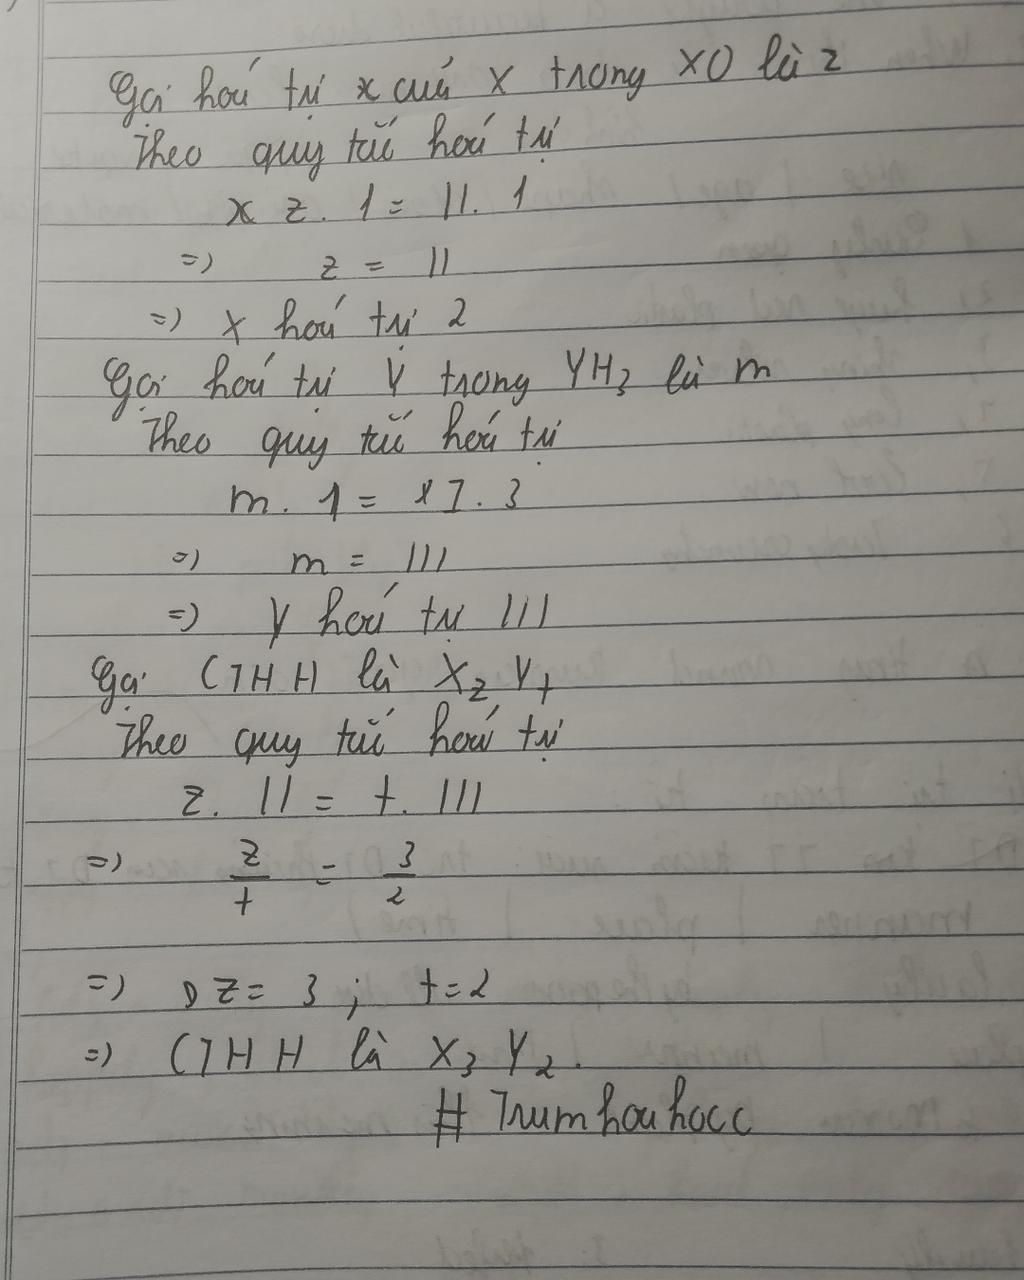 Gọi hoá trị x của X trong XO là z
Theo quy tắc hoá trị
x z. 1 = II. 1
=) z = II
=) X hoá trị 2
Gọi hoá trị Y trong YH3 là m
Theo quy tắc hoá trị
m. 1 = I. 3
=) m = III
=) Y hoá trị III
Gọi CTHH là XzYt
Theo quy tắc hoá trị
z. II = t. III
=) z/t = 3/2
=) z = 3; t = 2
=) CTHH là X3Y2.
# Trumhoahocc